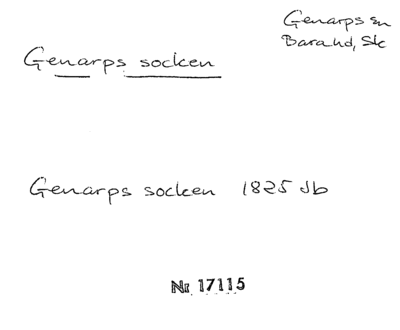 Genarps sn
Bara hd, Sk
Genarps socken
Genarps socken 1825 Jb
Nr 17115